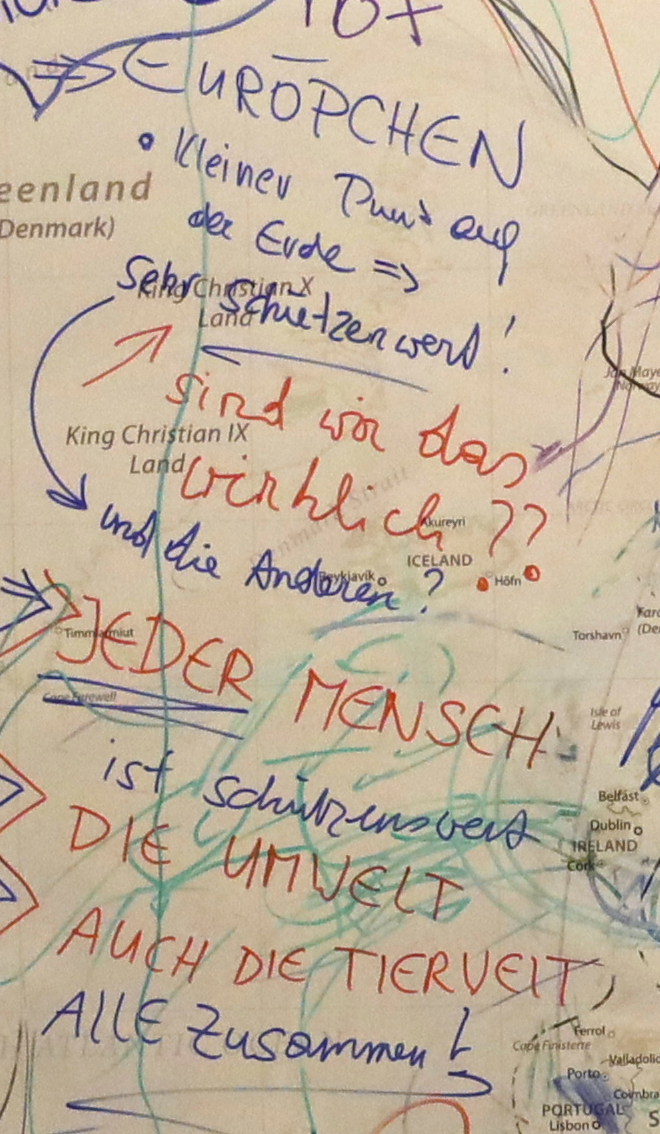 10+
⇒ EURÖPCHEN
• Kleiner Punkt auf
eenland
(Denmark)
der Erde ⇒
sehr schützenwert!
King Christian X
Land
sind wir das
King Christian IX
Land
wirklich ??
Denmark Strait
Akureyri
und die Anderen?
ICELAND
Reykjavik
Höfn
JEDER MENSCH
Timmiarmiut
Torshavn
Cape Farewell
Isle of
Lewis
ist schützenswert
Belfast
Dublin
IRELAND
Cork
DIE UMWELT
AUCH DIE TIERWELT,
ALLE zusammen!
Ferrol
Cape Finisterre
Valladolid
Porto
Coimbra
PORTUGAL
Lisbon